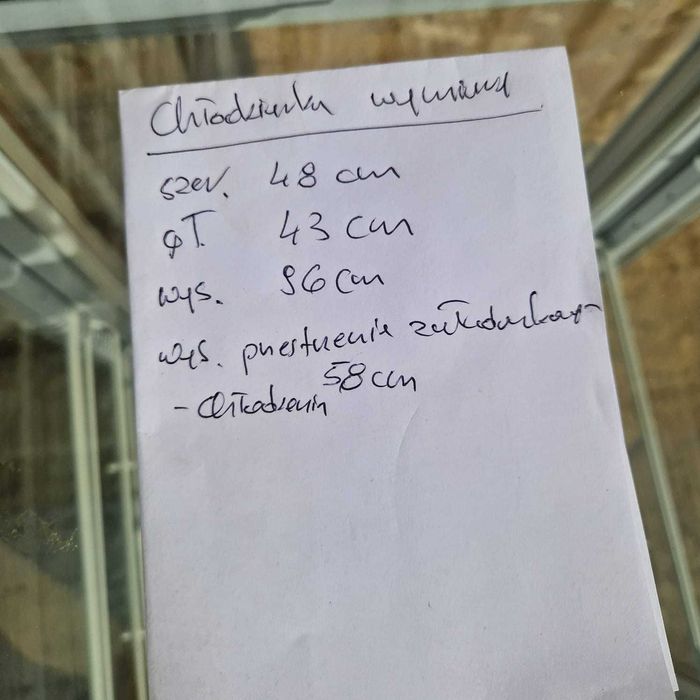 Chłodziarka wymiary
szer. 48 cm
gł. 43 cm
wys. 96 cm
wys. przestrzenie załadunkowy
58 cm
- chłodzenia